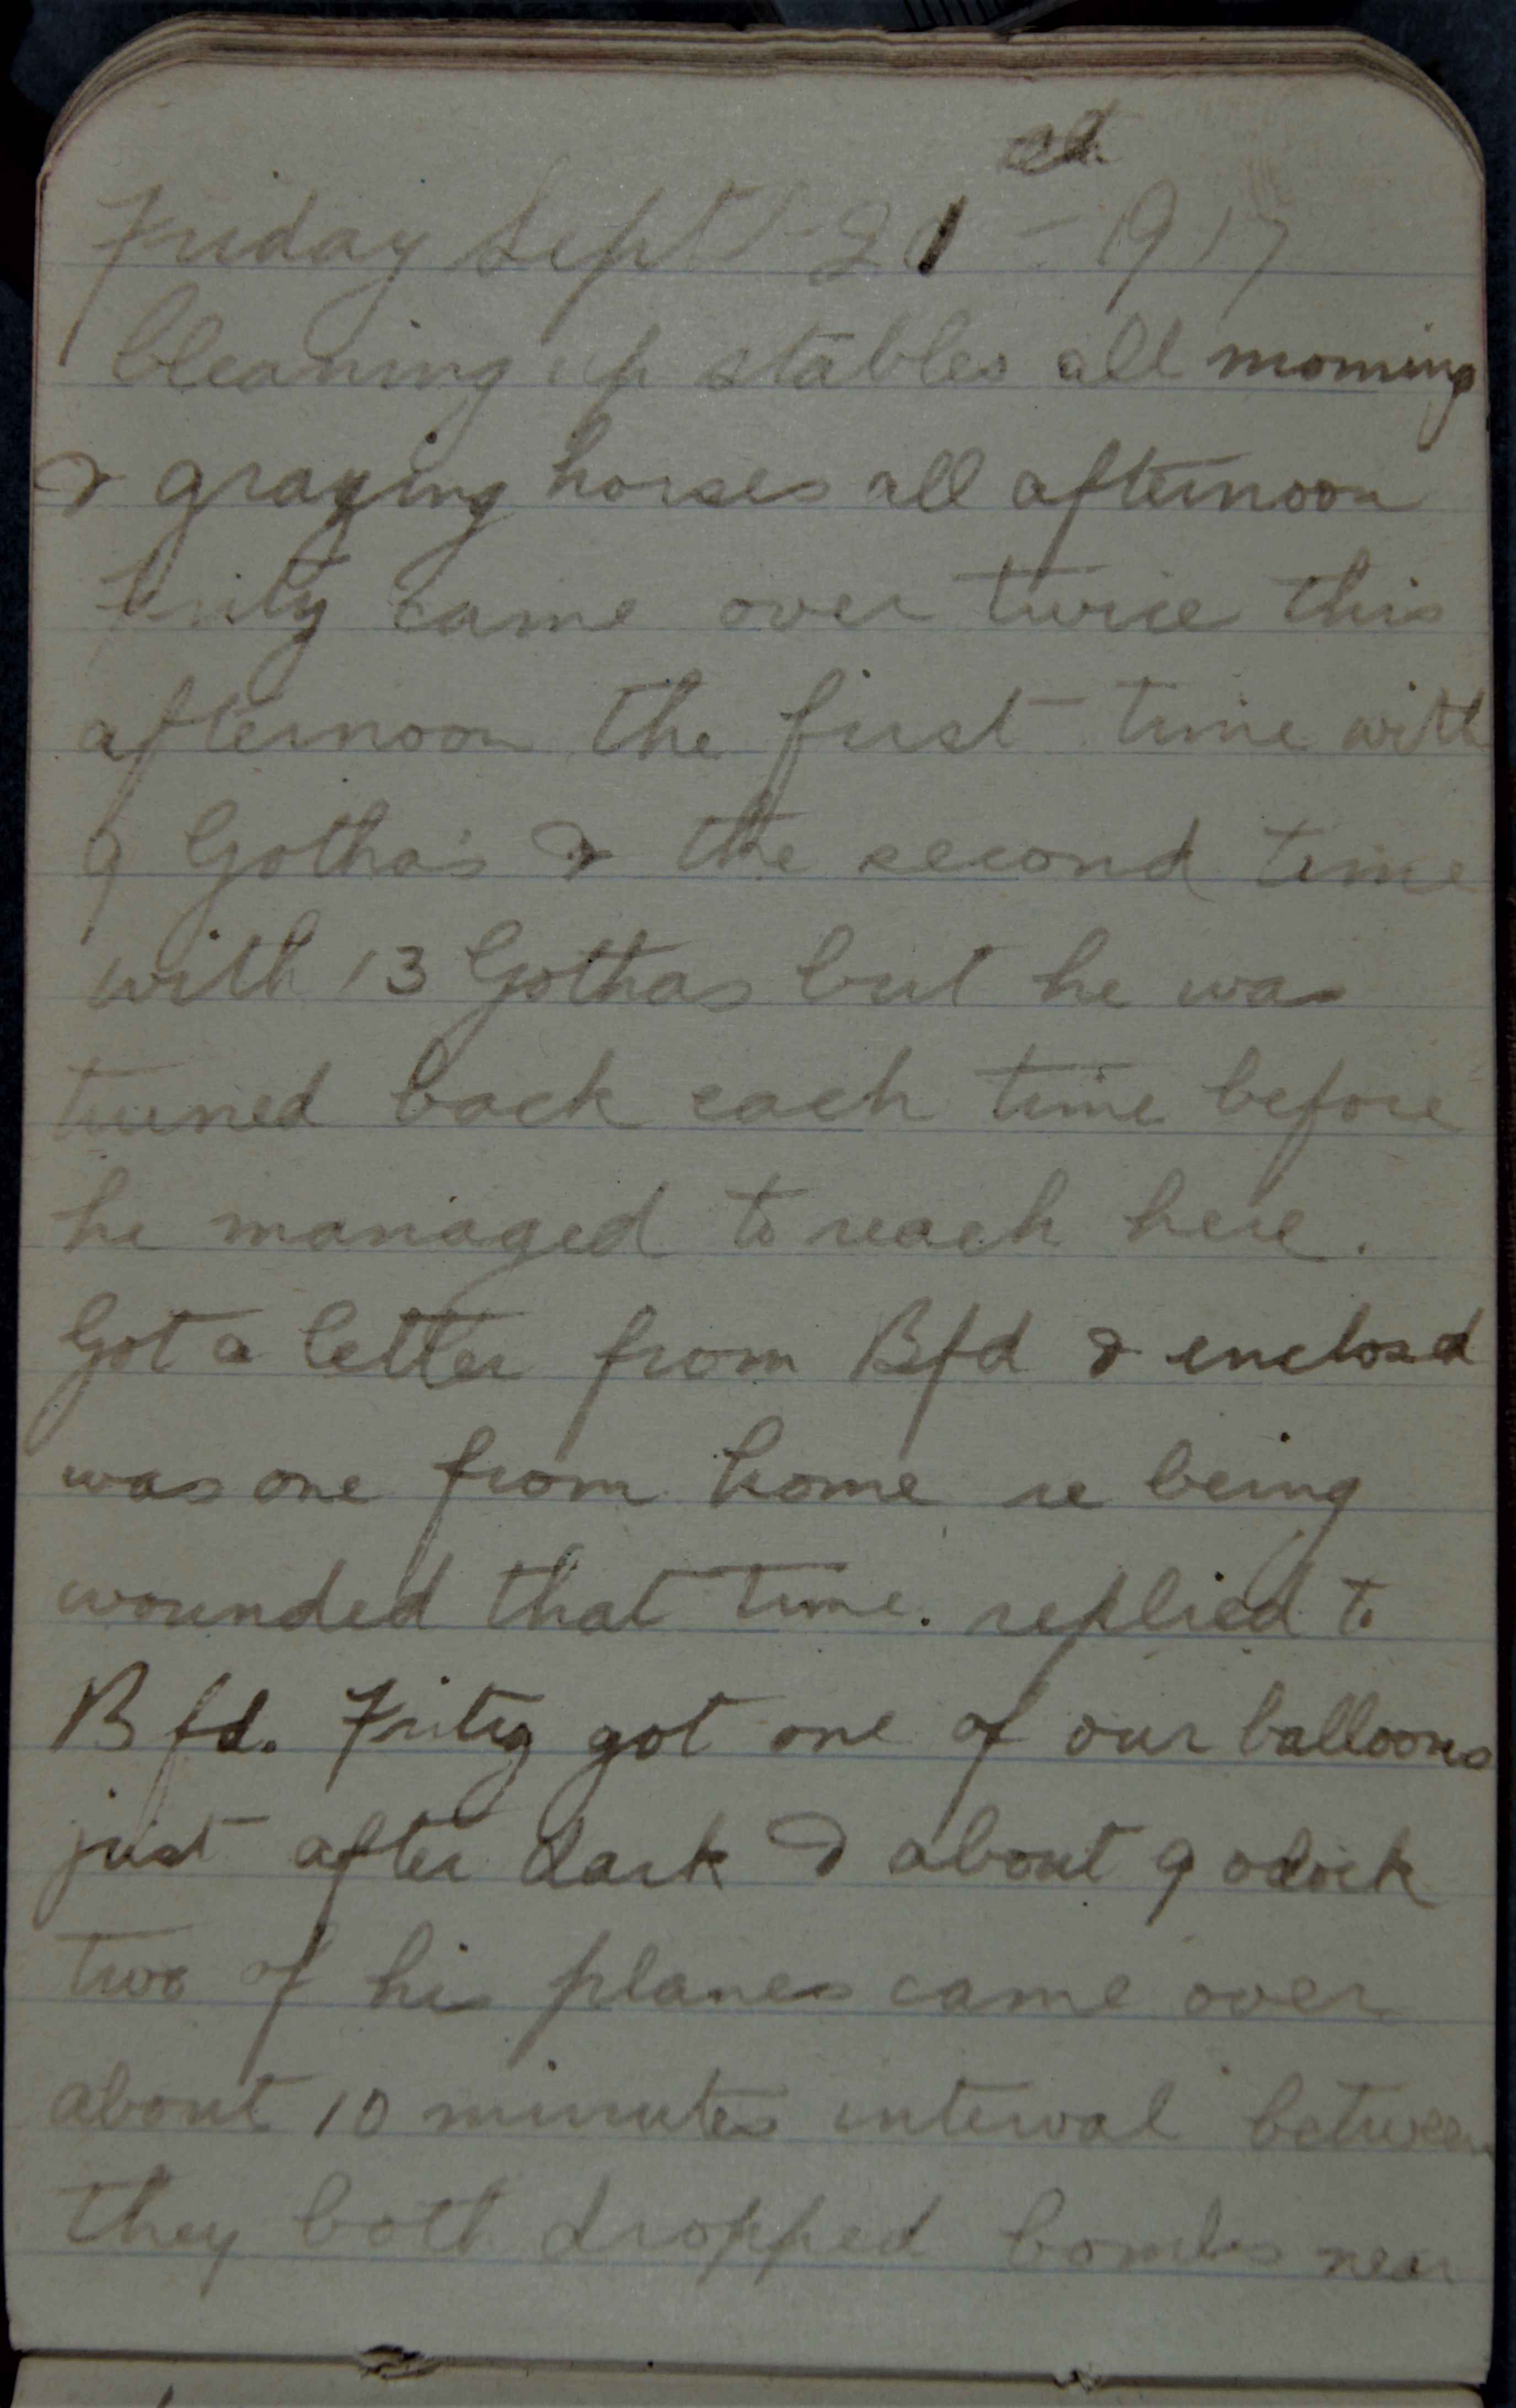 st
Friday Sept 21 - 1917
Cleaning up stables all morning
& grazing horses all afternoon
Fritz came over twice this
afternoon the first time with
9 Gotha's & the second time
with 13 Gothas but he was
turned back each time before
he managed to reach here.
Got a letter from Bfd & enclosed
was one from home re being
wounded that time. replied to
Bfd. Fritz got one of our balloons
just after dark & about 9 oclock
two of his planes came over
about 10 minutes interval between
they both dropped bombs near